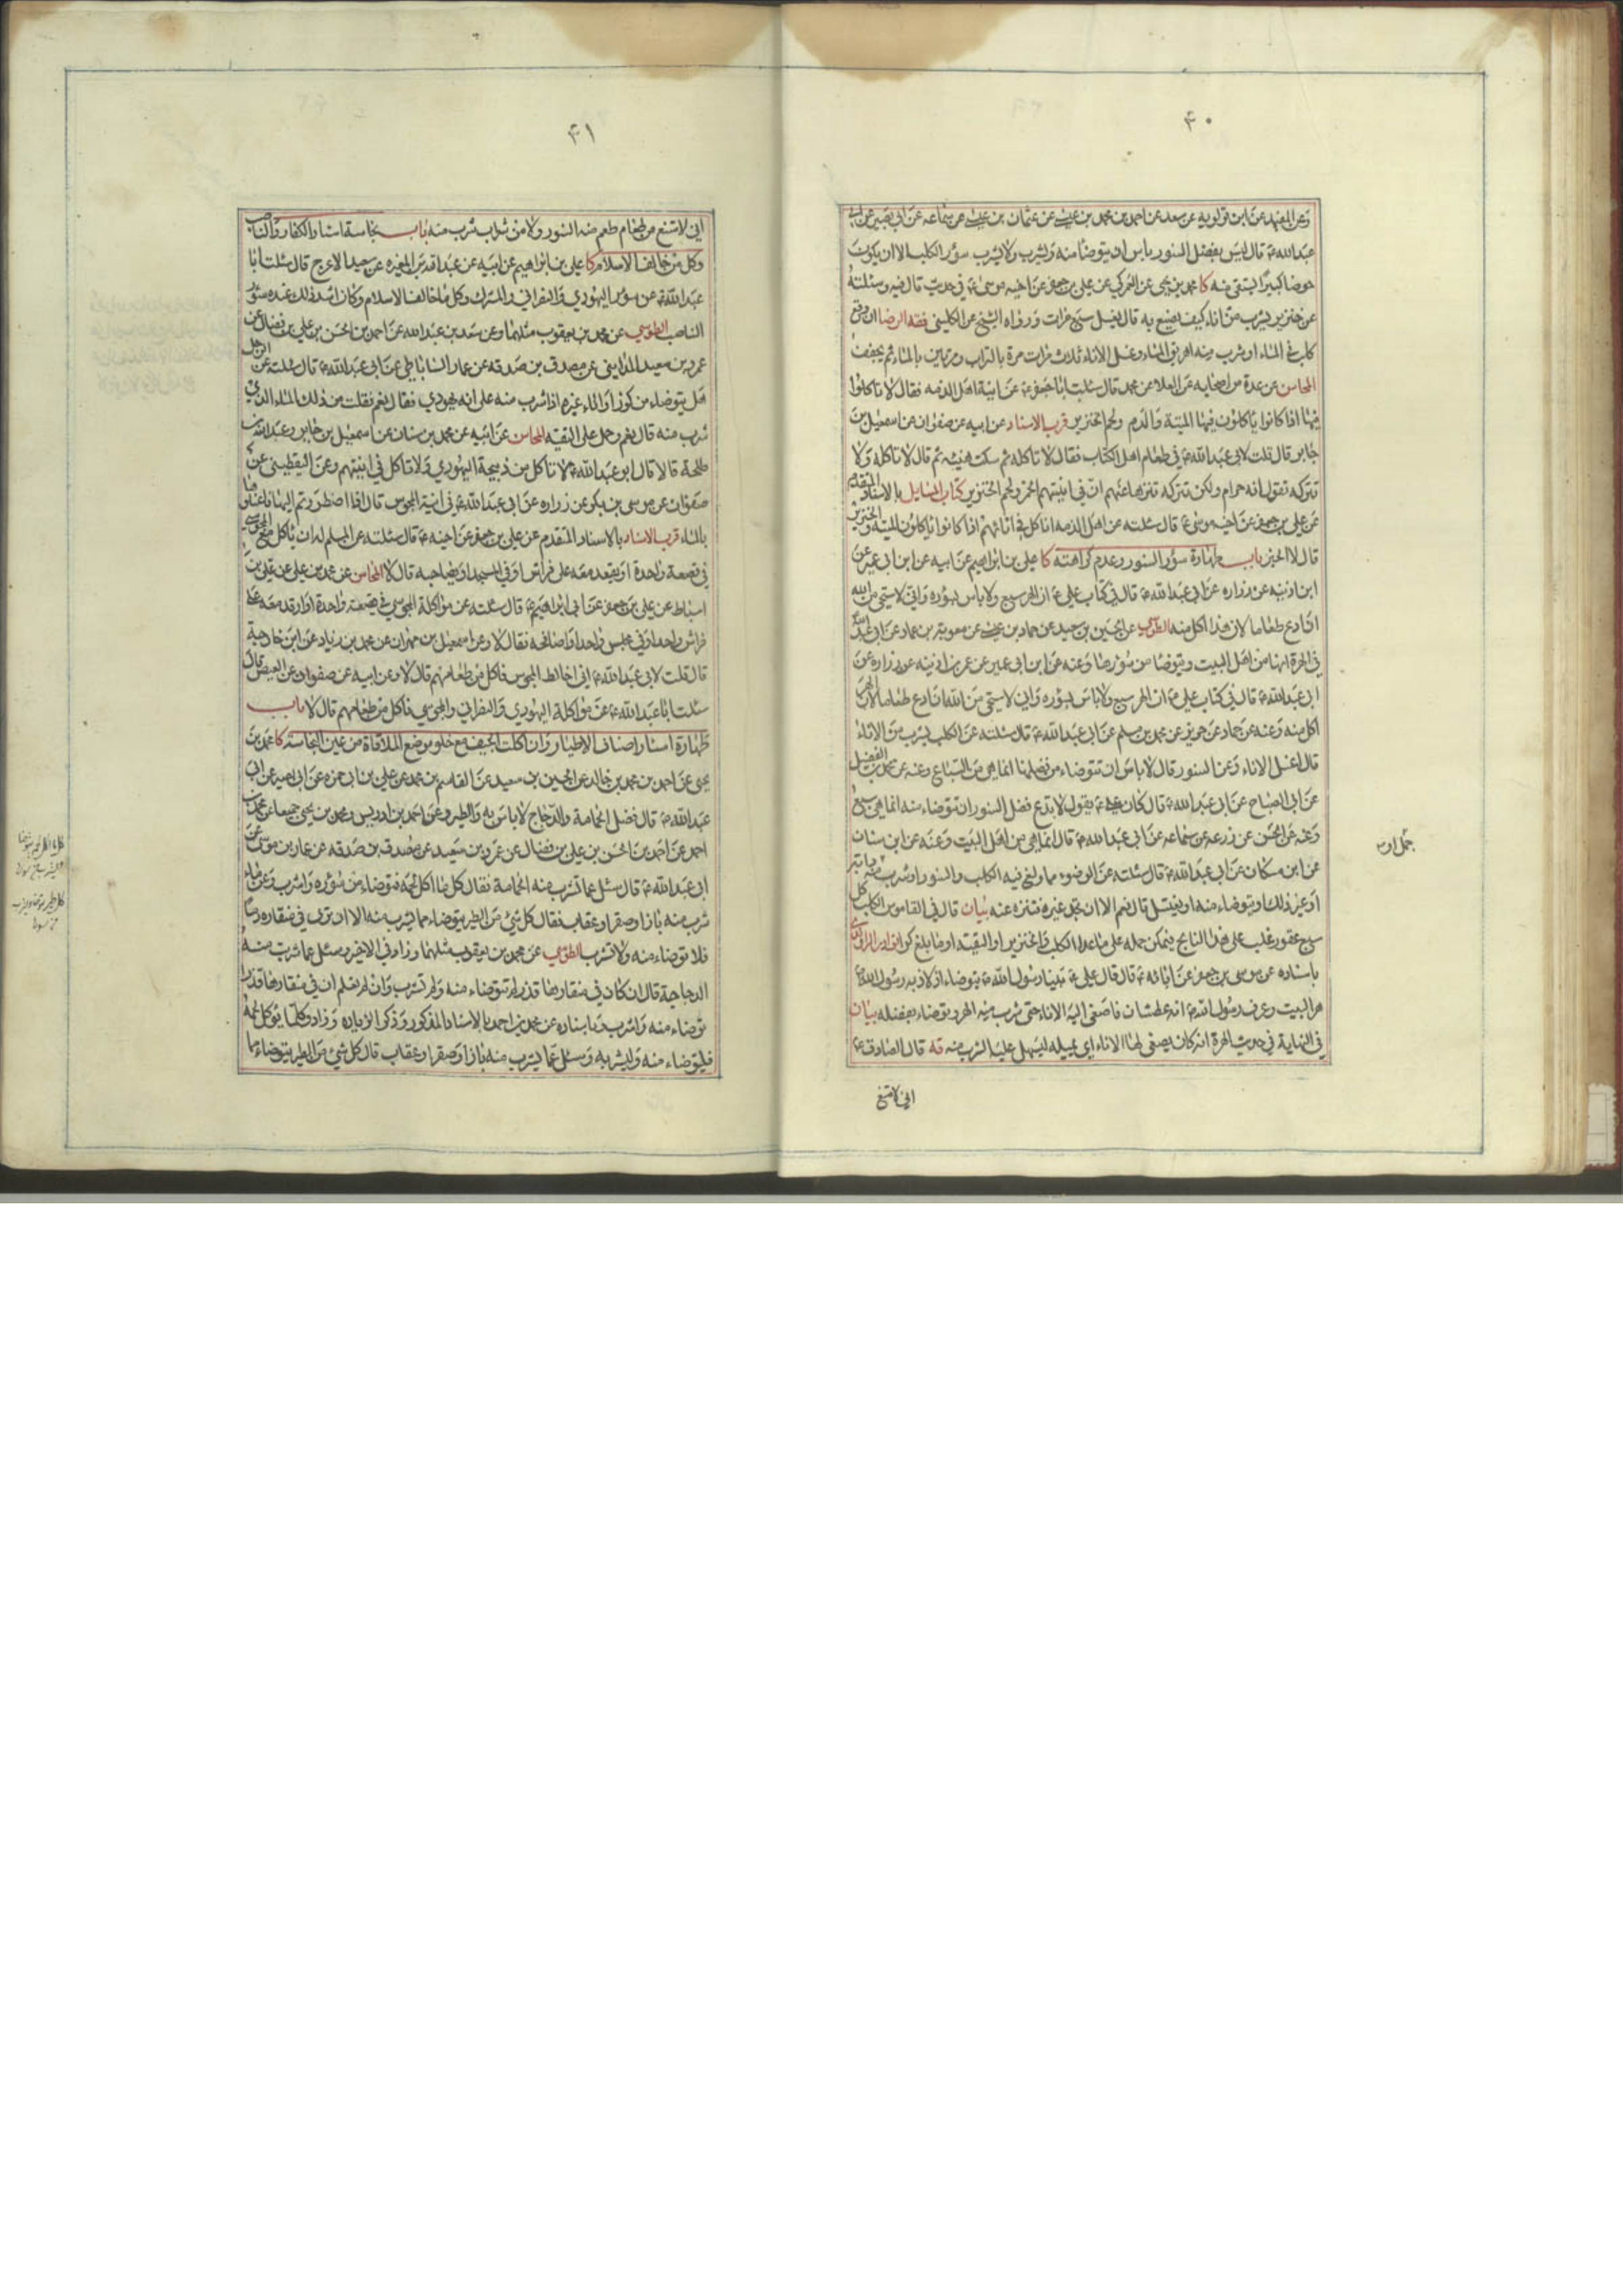 ۴۰
وعن المفيد عن ابن قولويه عن سعد عن احمد بن محمد بن عيسى عن عثمان بن عيسى عن سماعه عن ابي بصير عن ابي
عبدالله ع قال ليس بفضل السنور باس ان يتوضا منه ويشرب ولا يشرب سؤر الكلب الا ان يكون
حوضا كبيرا يستقى منه كا محمد بن يحيى عن العمركي عن علي بن جعفر عن اخيه موسى ع في حديث قال فيه وسئلته
عن خنزير يشرب من اناء كيف يصنع به قال يغسل سبع مرات ورواه الشيخ عن الكليني فقه الرضا ان وقع
كلب في الماء او شرب منه اهريق الماء وغسل الاناء ثلاث مرات مرة بالتراب ومرتين بالماء ثم يجفف
المحاسن عن عدة من اصحابه عن العلا عن محمد قال سئلت ابا جعفر ع عن انية اهل الذمه فقال لا تاكلوا
فيها اذا كانوا ياكلون فيها الميتة والدم ولحم الخنزير قرب الاسناد عن ابيه عن صفوان عن اسمعيل بن
جابر قال قلت لابي عبدالله ع في طعام اهل الكتاب فقال لا تاكله ثم سكت هنيئه ثم قال لا تاكله ولا
تتركه تقول انه حرام ولكن تتركه تنزها عنهم ان في انيتهم الخمر ولحم الخنزير كتاب المسايل بالاسناد المتقدم
عن علي بن جعفر عن اخيه موسى ع قال سئلته عن اهل الذمه اناكل في انائهم اذا كانوا ياكلون الميته والخنزير
قال لا الخبر باب طهارة سؤر السنور وعدم كراهته كا علي بن ابراهيم عن ابيه عن ابن ابي عمير عن
ابن اذنيه عن زراره عن ابي عبدالله ع قال في كتاب علي ع ان الهر سبع ولا باس بسؤره واني لاستحي من الله
ان ادع طعاما لان هرا اكل منه الطوسي عن الحسين بن سعيد عن حماد بن عيسى عن معوية بن عمار عن ابي عبدالله
في الهرة انها من اهل البيت ويتوضا من سؤرها وعنه عن ابن ابي عمير عن عمر بن اذنيه عن زراره عن
ابي عبدالله ع قال في كتاب علي ع ان الهر سبع ولا باس بسؤره واني لاستحي من الله ان ادع طعاما لان هرا
اكل منه وعنه عن حماد عن حريز عن محمد بن مسلم عن ابي عبدالله ع قال سئلته عن الكلب يشرب من الاناء
قال اغسل الاناء وعن السنور قال لا باس ان تتوضاء من فضلها انما هي من السباع وعنه عن محمد بن الفضيل
عن ابي الصباح عن ابي عبدالله ع قال كان علي ع يقول لا تدع فضل السنور ان تتوضاء منه انما هي سبع
وعنه عن الحسن عن زرعه عن سماعه عن ابي عبدالله ع قال انما هي من اهل البيت وعنه عن ابن سنان
عن ابن مسكان عن ابي عبدالله ع قال سئلته عن الوضوء مما ولغ فيه الكلب والسنور او شرب منه
او غير ذلك او يتوضاء منه او يغتسل قال نعم الا ان تجد غيره فتنزه عنه بيان قال في القاموس الكلب كل
سبع عقور غلب على هذا النابح فيمكن حمله على ما عدا الكلب والخنزير او التقيه او ما بلغ كرا
باسناده عن موسى بن جعفر عن ابائه ع قال قال علي ع بينا رسول الله ص يتوضاء اذ لاذ به
هر البيت وعرف رسول الله ص انه عطشان فاصغى اليه الاناء حتى شرب منه الهر وتوضاء بفضله بيان
في النهاية في حديث الهرة انه كان يصغي لها الاناء اي يميله ليسهل عليها الشرب منه قه قال الصادق ع
اني لا امتنع
۴۱
اني لا امتنع من طعام طعم منه السنور ولا من شراب شرب منه باب نجاسة اسئار الكفار والناصب
وكل من خالف الاسلام كا علي بن ابراهيم عن ابيه عن عبدالله بن المغيره عن سعيد الاعرج قال سئلت ابا
عبدالله ع عن سؤر اليهودي والنصراني والمشرك وكل ما خالف الاسلام وكان اشد ذلك عنده سؤر
الناصب الطوسي عن محمد بن يعقوب مثلهما وعن سعد بن عبدالله عن احمد بن الحسن بن علي بن فضال عن
عمرو بن سعيد المدايني عن مصدق بن صدقه عن عمار الساباطي عن ابي عبدالله ع قال سئلته عن الرجل
هل يتوضاء من كوز او اناء غيره اذا شرب منه على انه يهودي فقال نعم فقلت من ذلك الماء الذي
شرب منه قال نعم وحمل على التقيه المحاسن عن ابيه عن محمد بن سنان عن اسمعيل بن جابر وعبدالله بن
طلحة قالا قال ابو عبدالله ع لا تاكل من ذبيحة اليهودي ولا تاكل في انيتهم وعن اليقطيني عن
صفوان عن موسى بن بكر عن زراره عن ابي عبدالله ع في انية المجوس قال اذا اضطررتم اليها فاغسلوها
بالماء قرب الاسناد بالاسناد المتقدم عن علي بن جعفر عن اخيه ع قال سئلته عن المسلم له ان ياكل مع المجوسي
في قصعة واحدة او يقعد معه على فراش او في المسجد او يصاحبه قال لا المحاسن عن محمد بن علي عن علي بن
اسباط عن علي بن جعفر عن ابي ابراهيم ع قال سئلته عن مؤاكلة المجوسي في قصعة واحدة او ارقد معه على
فراش واحد او في مجلس واحد او اصافحه فقال لا وعن اسمعيل بن مهران عن محمد بن زياد عن ابن خارجة
قال قلت لابي عبدالله ع اني اخالط المجوس فاكل من طعامهم قال لا وعن ابيه عن صفوان عن العيص قال
سئلت ابا عبدالله ع عن مؤاكلة اليهودي والنصراني والمجوسي فاكل من طعامهم قال لا باب
طهارة اسئار اصناف الاطيار وان اكلت الجيف مع خلو موضع الملاقاة من عين النجاسة كا محمد بن
يحيى عن احمد بن محمد بن خالد عن الحسين بن سعيد عن القاسم بن محمد عن علي بن ابي حمزه عن ابي بصير عن ابي
عبدالله ع قال فضل الحمامة والدجاج لا باس به والطير وعن احمد بن ادريس ومحمد بن يحيى جميعا عن محمد بن
احمد عن احمد بن الحسن بن علي بن فضال عن عمرو بن سعيد عن مصدق بن صدقه عن عمار بن موسى عن
ابي عبدالله ع قال سئل عما تشرب منه الحمامة فقال كل ما اكل لحمه فتوضاء من سؤره واشرب وعن ماء
شرب منه باز او صقر او عقاب فقال كل شئ من الطير يتوضاء مما يشرب منه الا ان ترى في منقاره دما
فلا توضاء منه ولا تشرب الطوسي عن محمد بن يعقوب مثلهما وزاد في الاخير وسئل عما شربت منه
الدجاجة قال ان كان في منقارها قذر لم تتوضاء منه ولم تشرب وان لم تعلم ان في منقارها قذرا
توضاء منه واشرب وباسناده عن محمد بن احمد بالاسناد المذكور وذكر الزياده وزاد وكلما يؤكل لحمه
فليتوضاء منه وليشربه وسئل عما يشرب منه باز او صقر او عقاب قال كل شئ من الطير يتوضاء مما